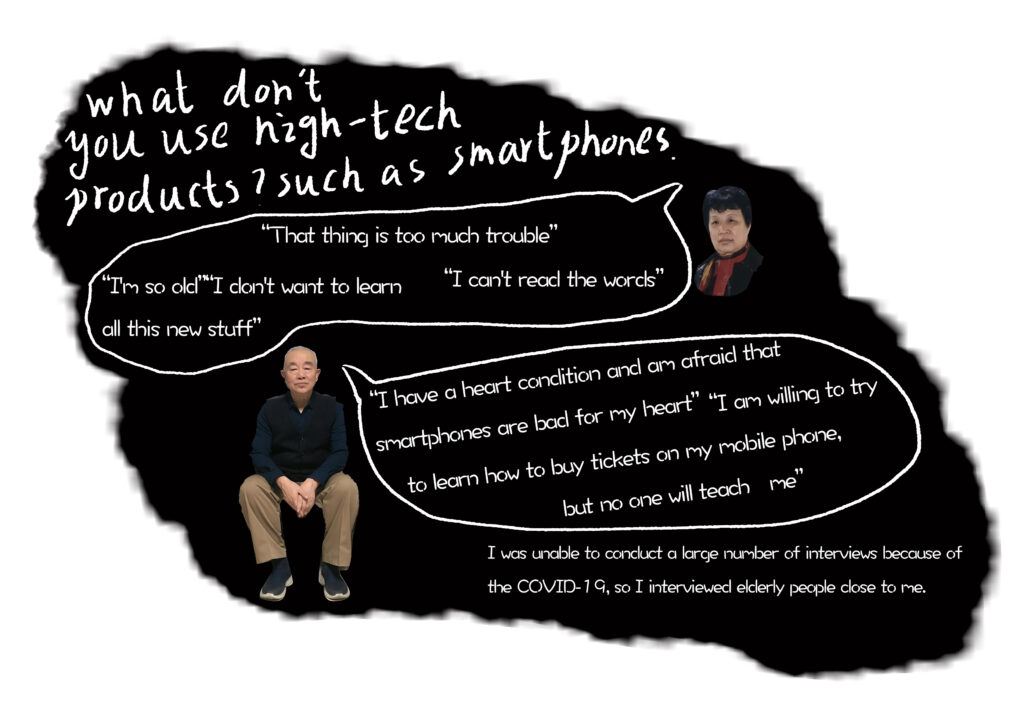 what don't
you use high-tech
products? such as smartphones.
“That thing is too much trouble”
“I'm so old”“I don't want to learn
all this new stuff”
“I can't read the words”
“I have a heart condition and am afraid that
smartphones are bad for my heart” “I am willing to try
to learn how to buy tickets on my mobile phone,
but no one will teach me”
I was unable to conduct a large number of interviews because of
the COVID-19, so I interviewed elderly people close to me.